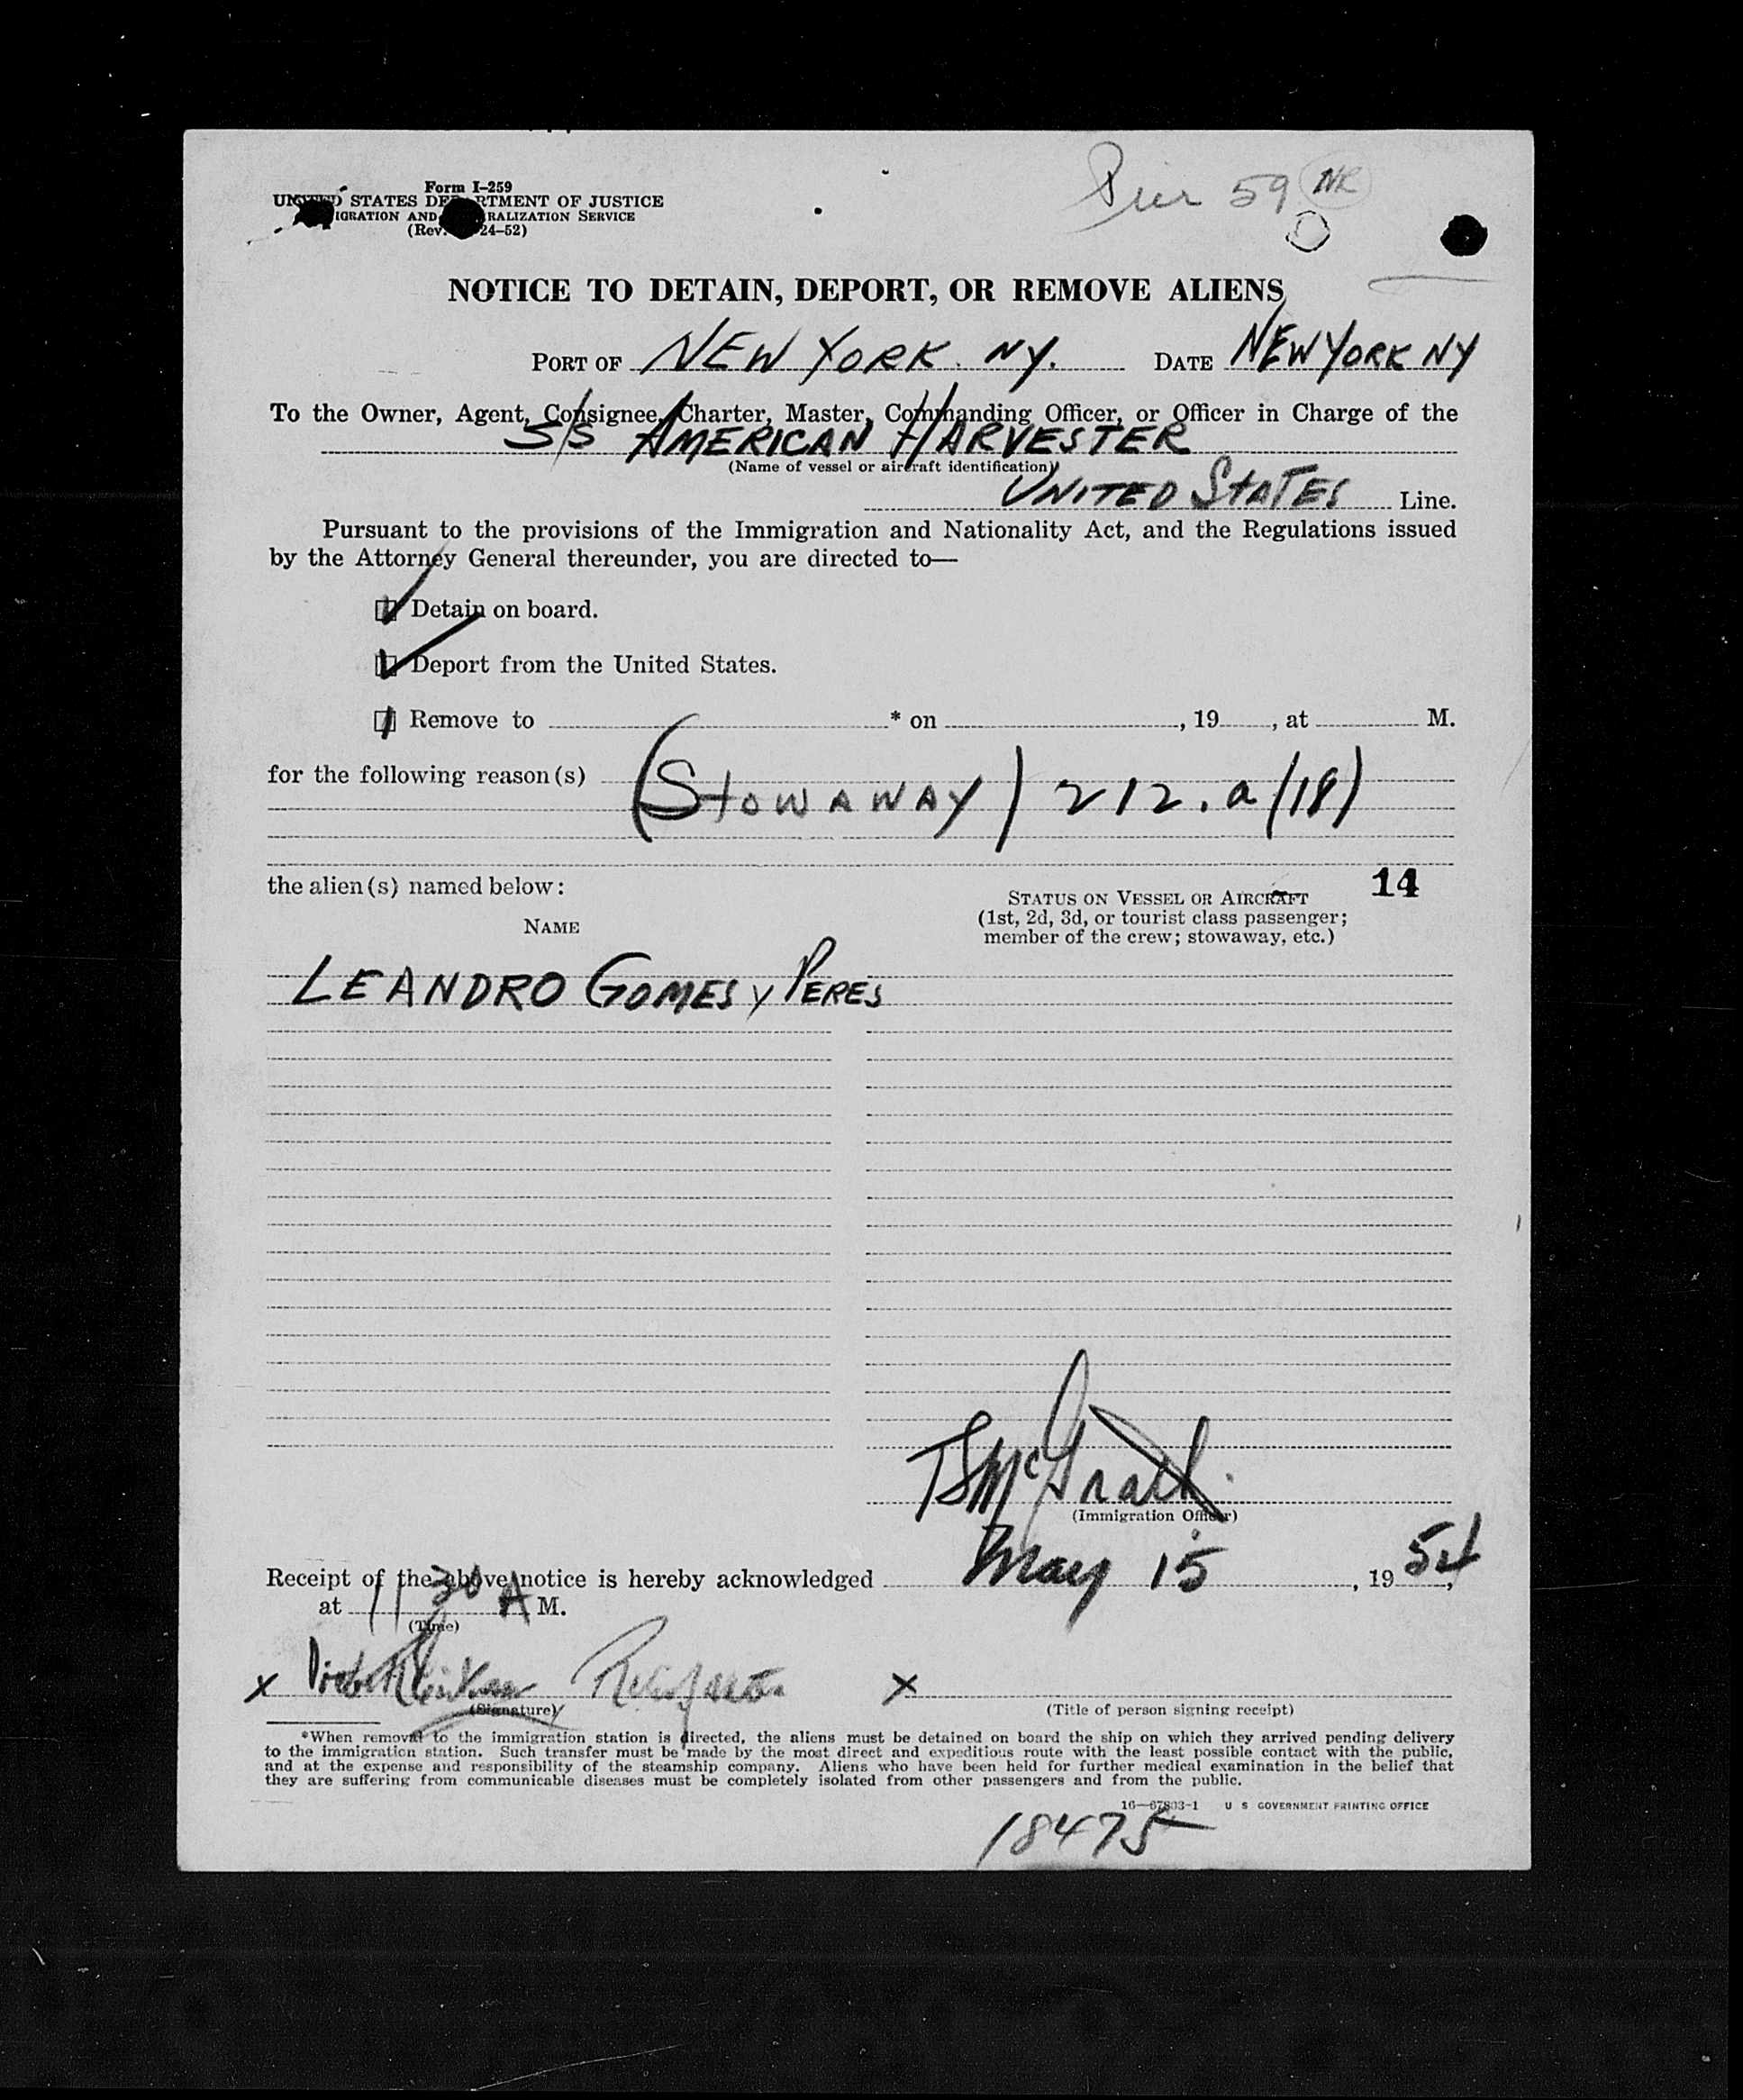 Form I-259
UNITED STATES DEPARTMENT OF JUSTICE
IGRATION AND RALIZATION SERVICE
(Rev. 24-52)
Pier 59 NR
NOTICE TO DETAIN, DEPORT, OR REMOVE ALIENS
PORT OF NEW YORK. NY. DATE NEW YORK NY
To the Owner, Agent, Consignee, Charter, Master, Commanding Officer, or Officer in Charge of the
S/S AMERICAN HARVESTER
(Name of vessel or aircraft identification)
UNITED STATES Line.
Pursuant to the provisions of the Immigration and Nationality Act, and the Regulations issued
by the Attorney General thereunder, you are directed to—
Detain on board.
Deport from the United States.
Remove to * on , 19 , at M.
for the following reason(s) (STOWAWAY) 212.a(18)
the alien(s) named below:
14
NAME
STATUS ON VESSEL OR AIRCRAFT
(1st, 2d, 3d, or tourist class passenger;
member of the crew; stowaway, etc.)
LEANDRO GOMES y PERES
TSMcGrath.
(Immigration Officer)
Receipt of the above notice is hereby acknowledged May 15, 1954,
at 11 30 A M.
(Time)
x x
(Signature) (Title of person signing receipt)
*When removal to the immigration station is directed, the aliens must be detained on board the ship on which they arrived pending delivery
to the immigration station. Such transfer must be made by the most direct and expeditious route with the least possible contact with the public,
and at the expense and responsibility of the steamship company. Aliens who have been held for further medical examination in the belief that
they are suffering from communicable diseases must be completely isolated from other passengers and from the public.
16—67803-1 U S GOVERNMENT PRINTING OFFICE
18475